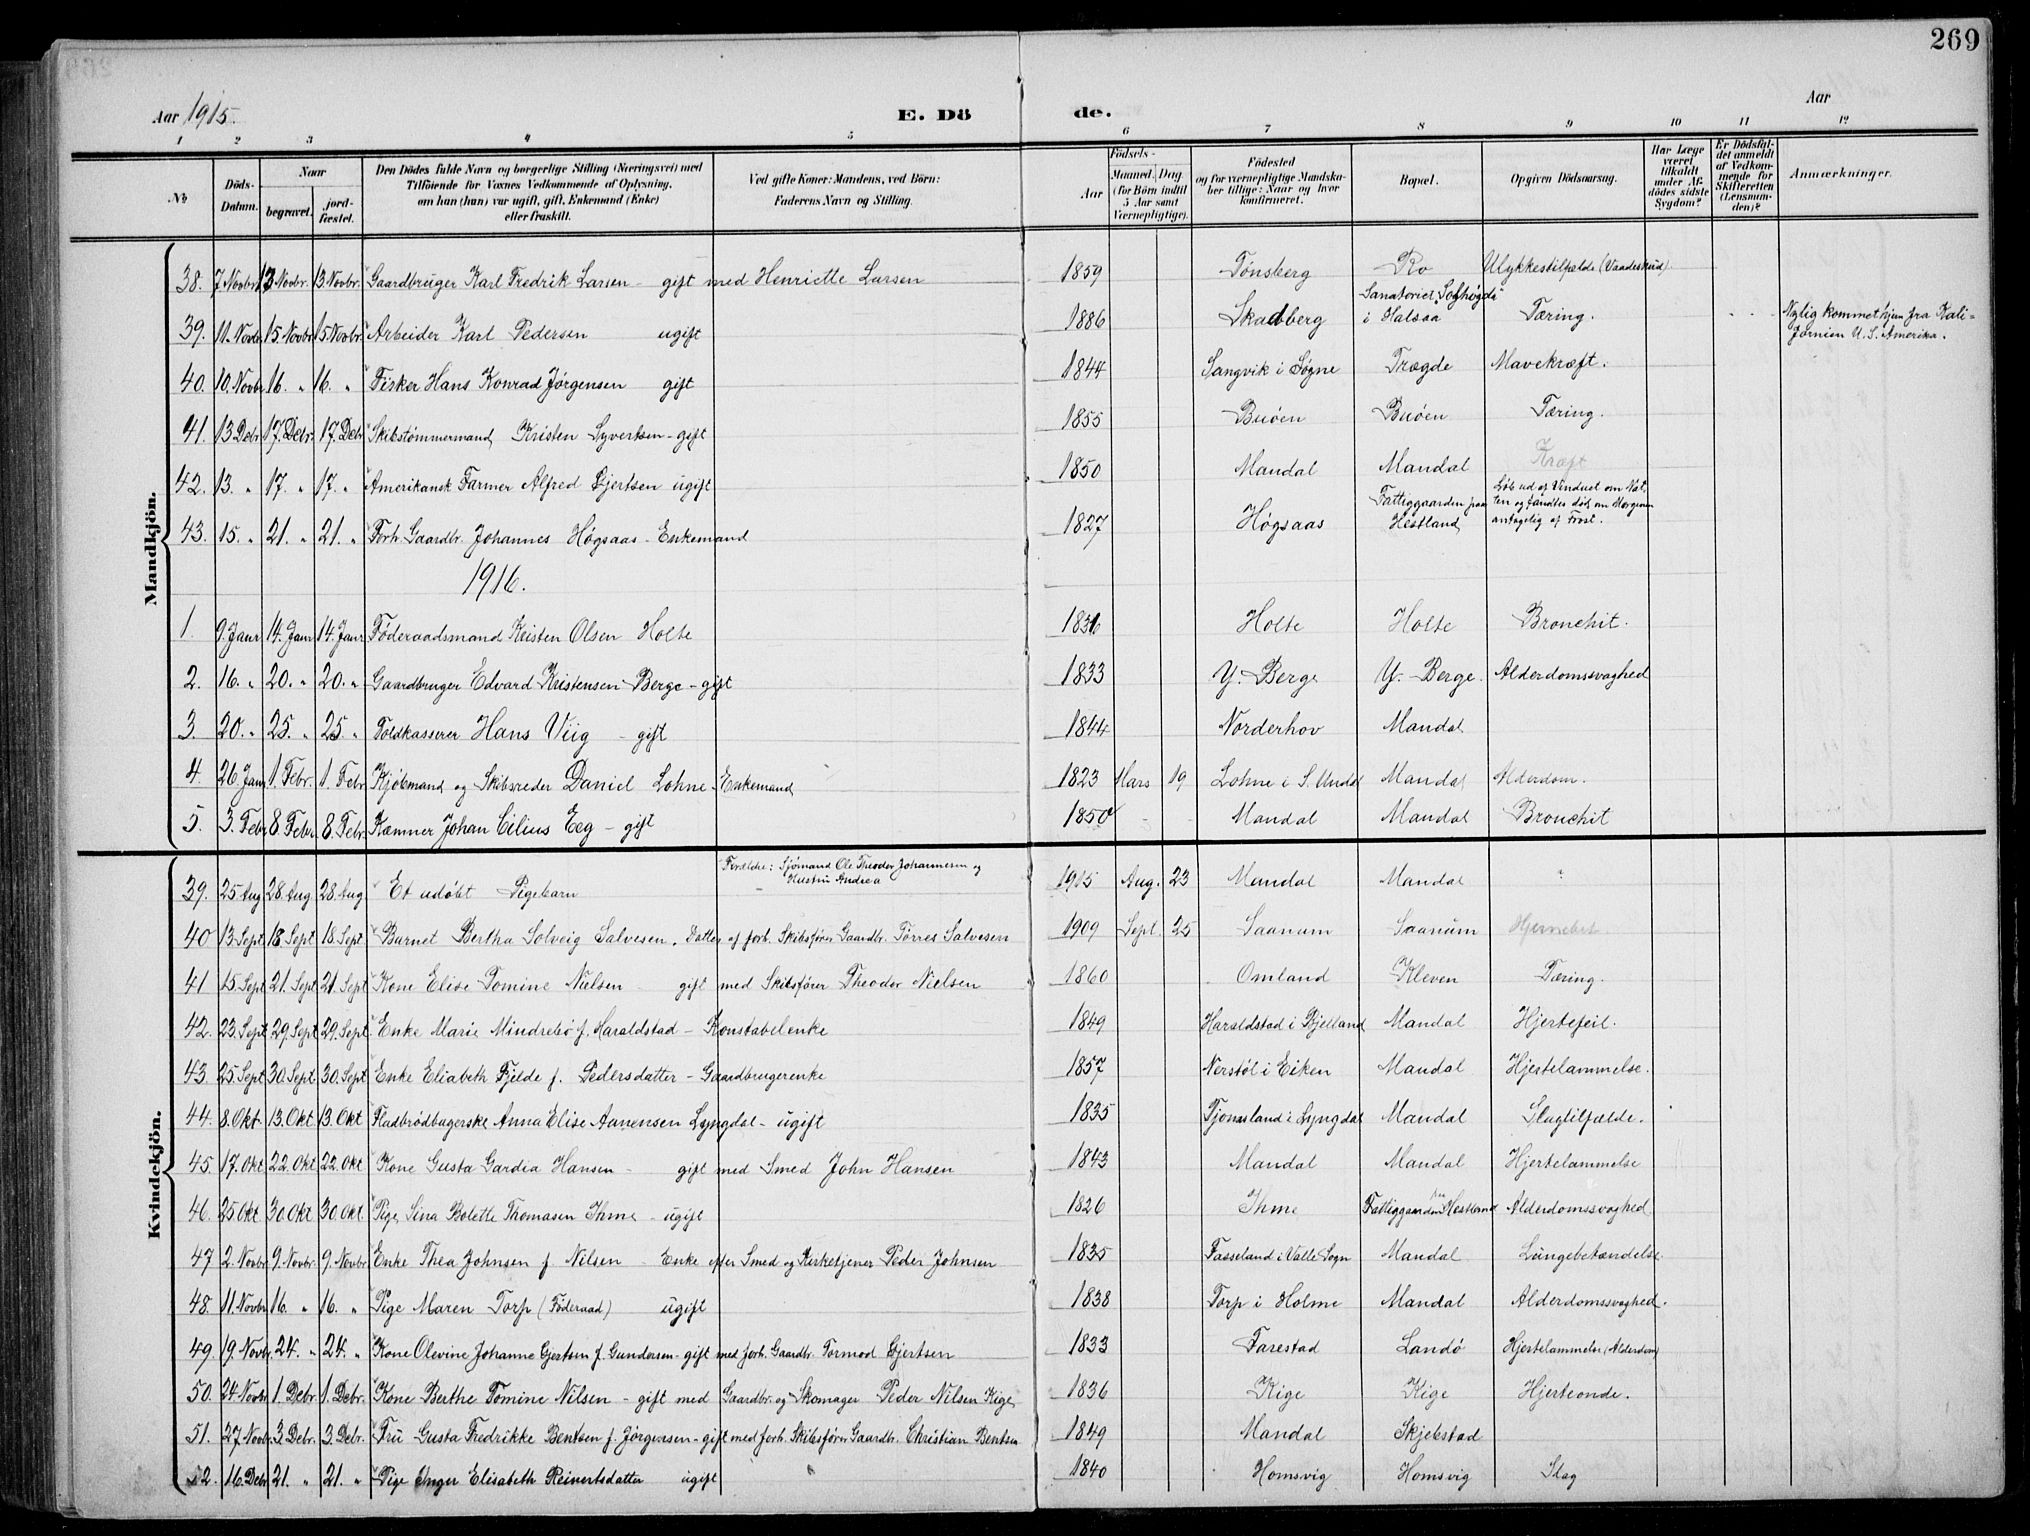 269
Aar 1915. E. Dö de. Aar
1 2 3 4 5 6 7 8 9 10 11 12
No
Döds-Datum.
Naar
begravet.
jord-fæstet.
Den Dödes fulde Navn og borgerlige Stilling (Næringsvei) med
Tilföiende for Voxnes Vedkommende af Oplysning,
om han (hun) var ugift, gift, Enkemand (Enke)
eller fraskilt.
Ved gifte Koner: Mandens, ved Börn:
Faderens Navn og Stilling.
Födsels-
Aar
Maaned. Dag
(for Börn indtil
5 Aar samt
Værnepligtige).
Födested
og for værnepligtige Mandska-
ber tillige: Naar og hvor
konfirmeret.
Bopæl.
Opgiven Dödsaarsag.
Har Læge
været
tilkaldt
under Af-
dödes sidste
Sygdom?
Er Dödsfal-
det anmeldt
af Vedkom-
mende for
Skifteretten
(Lensman-
den)?
Anmærkninger.
Mandkjön.
38. 7 Novbr 13 Novbr. 13. Novbr. Gaardbruger Karl Fredrik Larsen - gift med Henriette Larsen 1859 Tønsberg Ro Ulykkestilfælde (Vaadeskud).
39. 11. Novbr 15. Novbr 15. Novbr. Arbeider Karl Pedersen ugift 1886 Skadberg Sanatoriet "Solhøgda" i Halsaa Tæring. Nylig kommet hjem fra Kali-
fornien U. S. Amerika.
40. 10. Novbr 16. " 16. " Fisker Hans Konrad Jørgensen gift 1844 Sangvik i Søgne Trægde Mavekræft.
41. 13 Debr. 17. Debr. 17. Debr Skibstømmermand Kristen Syvertsen - gift 1855 Buøen Buøen Tæring.
42. 13. " 17. " 17. " Amerikansk Farmer Alfred Gjertsen ugift 1850 Mandal Mandal Kræft
43. 15. " 21. " 21. " Forh. Gaardbr. Johannes Høgsaas - Enkemand 1827 Høgsaas Fattiggaarden paa Hestland Løb ud af Vinduet om Nat-
ten og fandtes død om Morgenen
antagelig af Frost.
1916.
1. 9. Janr 14. Janr 14. Janr Føderaadsmand Kristen Olsen Holte 1836 Holte Holte Bronchit.
2. 16. " 20. " 20. " Gaardbruger Edvard Kristensen Berge - gift 1833 Y. Berge Y. Berge. Alderdomssvaghed
3. 20. " 25. " 25. " Toldkasserer Hans Viig - gift 1844 Norderhov Mandal
4. 26. Janr 1. Febr. 1. Febr Kjøbmand og Skibsreder Daniel Lohne - Enkemand 1823 Mars 19 Lohne i S. Undal Mandal Alderdom.
5. 3. Febr 8. Febr 8. Febr. Kæmner Johan Cilius Eeg - gift 1850 Mandal Mandal Bronchit
Kvindekjön.
39. 25 Aug 28. Aug 28. Aug Et udøbt Pigebarn Forældre: Sjømand Ole Theodor Johannesen og
Hustru Andrea 1915 Aug. 23 Mandal Mandal "
40 13 Sept 18 Sept 18. Sept. Barnet Bertha Solveig Salvesen. Datter af forh. Skibsfører Gaardbr. Tørres Salvesen 1909 Sept. 25 Saanum Saanum
41 15 Sept 21. Sept 21 Sept Kone Elise Tomine Nielsen - gift med Skibsfører Theodor Nielsen 1860 Omland Kleven Tæring.
42. 23 Sept 29. Sept 29. Sept Enke Marie Mindrebø f. Haraldstad - Konstabelenke 1849 Haraldstad i Bjelland Mandal Hjertefeil.
43 25 Sept 30 Sept 30. Sept Enke Eliabeth Fjelde f. Pedersdatter - Gaardbrugerenke 1857 Nerstøl i Eiken Mandal Hjertelammelse.
44. 8. Okt. 13. Okt 13. Okt Fladbrødbagerske Anna Elise Aanensen Lyngdal - ugift 1835 Tjomsland i Lyngdal Mandal Slagtilfælde.
45. 17. Okt 22. Okt 22. Okt Kone Gusta Gardia Hansen - gift med Smed John Hansen 1843 Mandal Mandal Hjertelammelse
46. 25 Okt 30 Okt 30 Okt. Pige Sina Bolette Thomasen Ihme - ugift 1826 Ihme Fattiggaarden paa Hestland Alderdomssvaghed
47 2. Novbr. 9. Novbr. 9. Novbr Enke Thea Johnsen f Nilsen - Enke efter Smed og Kirketjener Peder Johnsen 1835 Fasseland i Valle Sogn Mandal Lungebetændelse
48. 11. Novbr 16. " 16. " Pige Maren Torp (Føderaad) ugift 1838 Torp i Holme Mandal Alderdomssvaghed.
49. 19. Novbr. 24. " 24. " Kone Olevine Johanne Gjertsen f. Gundersen - gift med forh. Gaardbr. Tormod Gjertsen 1833 Farestad Landø Hjertelammelse (Alderdom)
50. 24 Novbr 1. Debr. 1. Debr. Kone Berthe Tomine Nilsen - gift med Gaardbr. og Skomager Peder Nilsen Kige 1836 Kige Kige Hjerteonde.
51. 27 Novbr. 3. Debr. 3. Debr. Fru Gusta Fredrikke Bentsen f. Jørgensen - gift med forh. Skibsfører Gaardbr. Christian Bentsen 1849 Mandal Skjebstad
52. 16. Debr 21. " 21. " Pige Inger Elisabeth Reinertsdatter ugift 1840 Homsvig Homsvig Slag